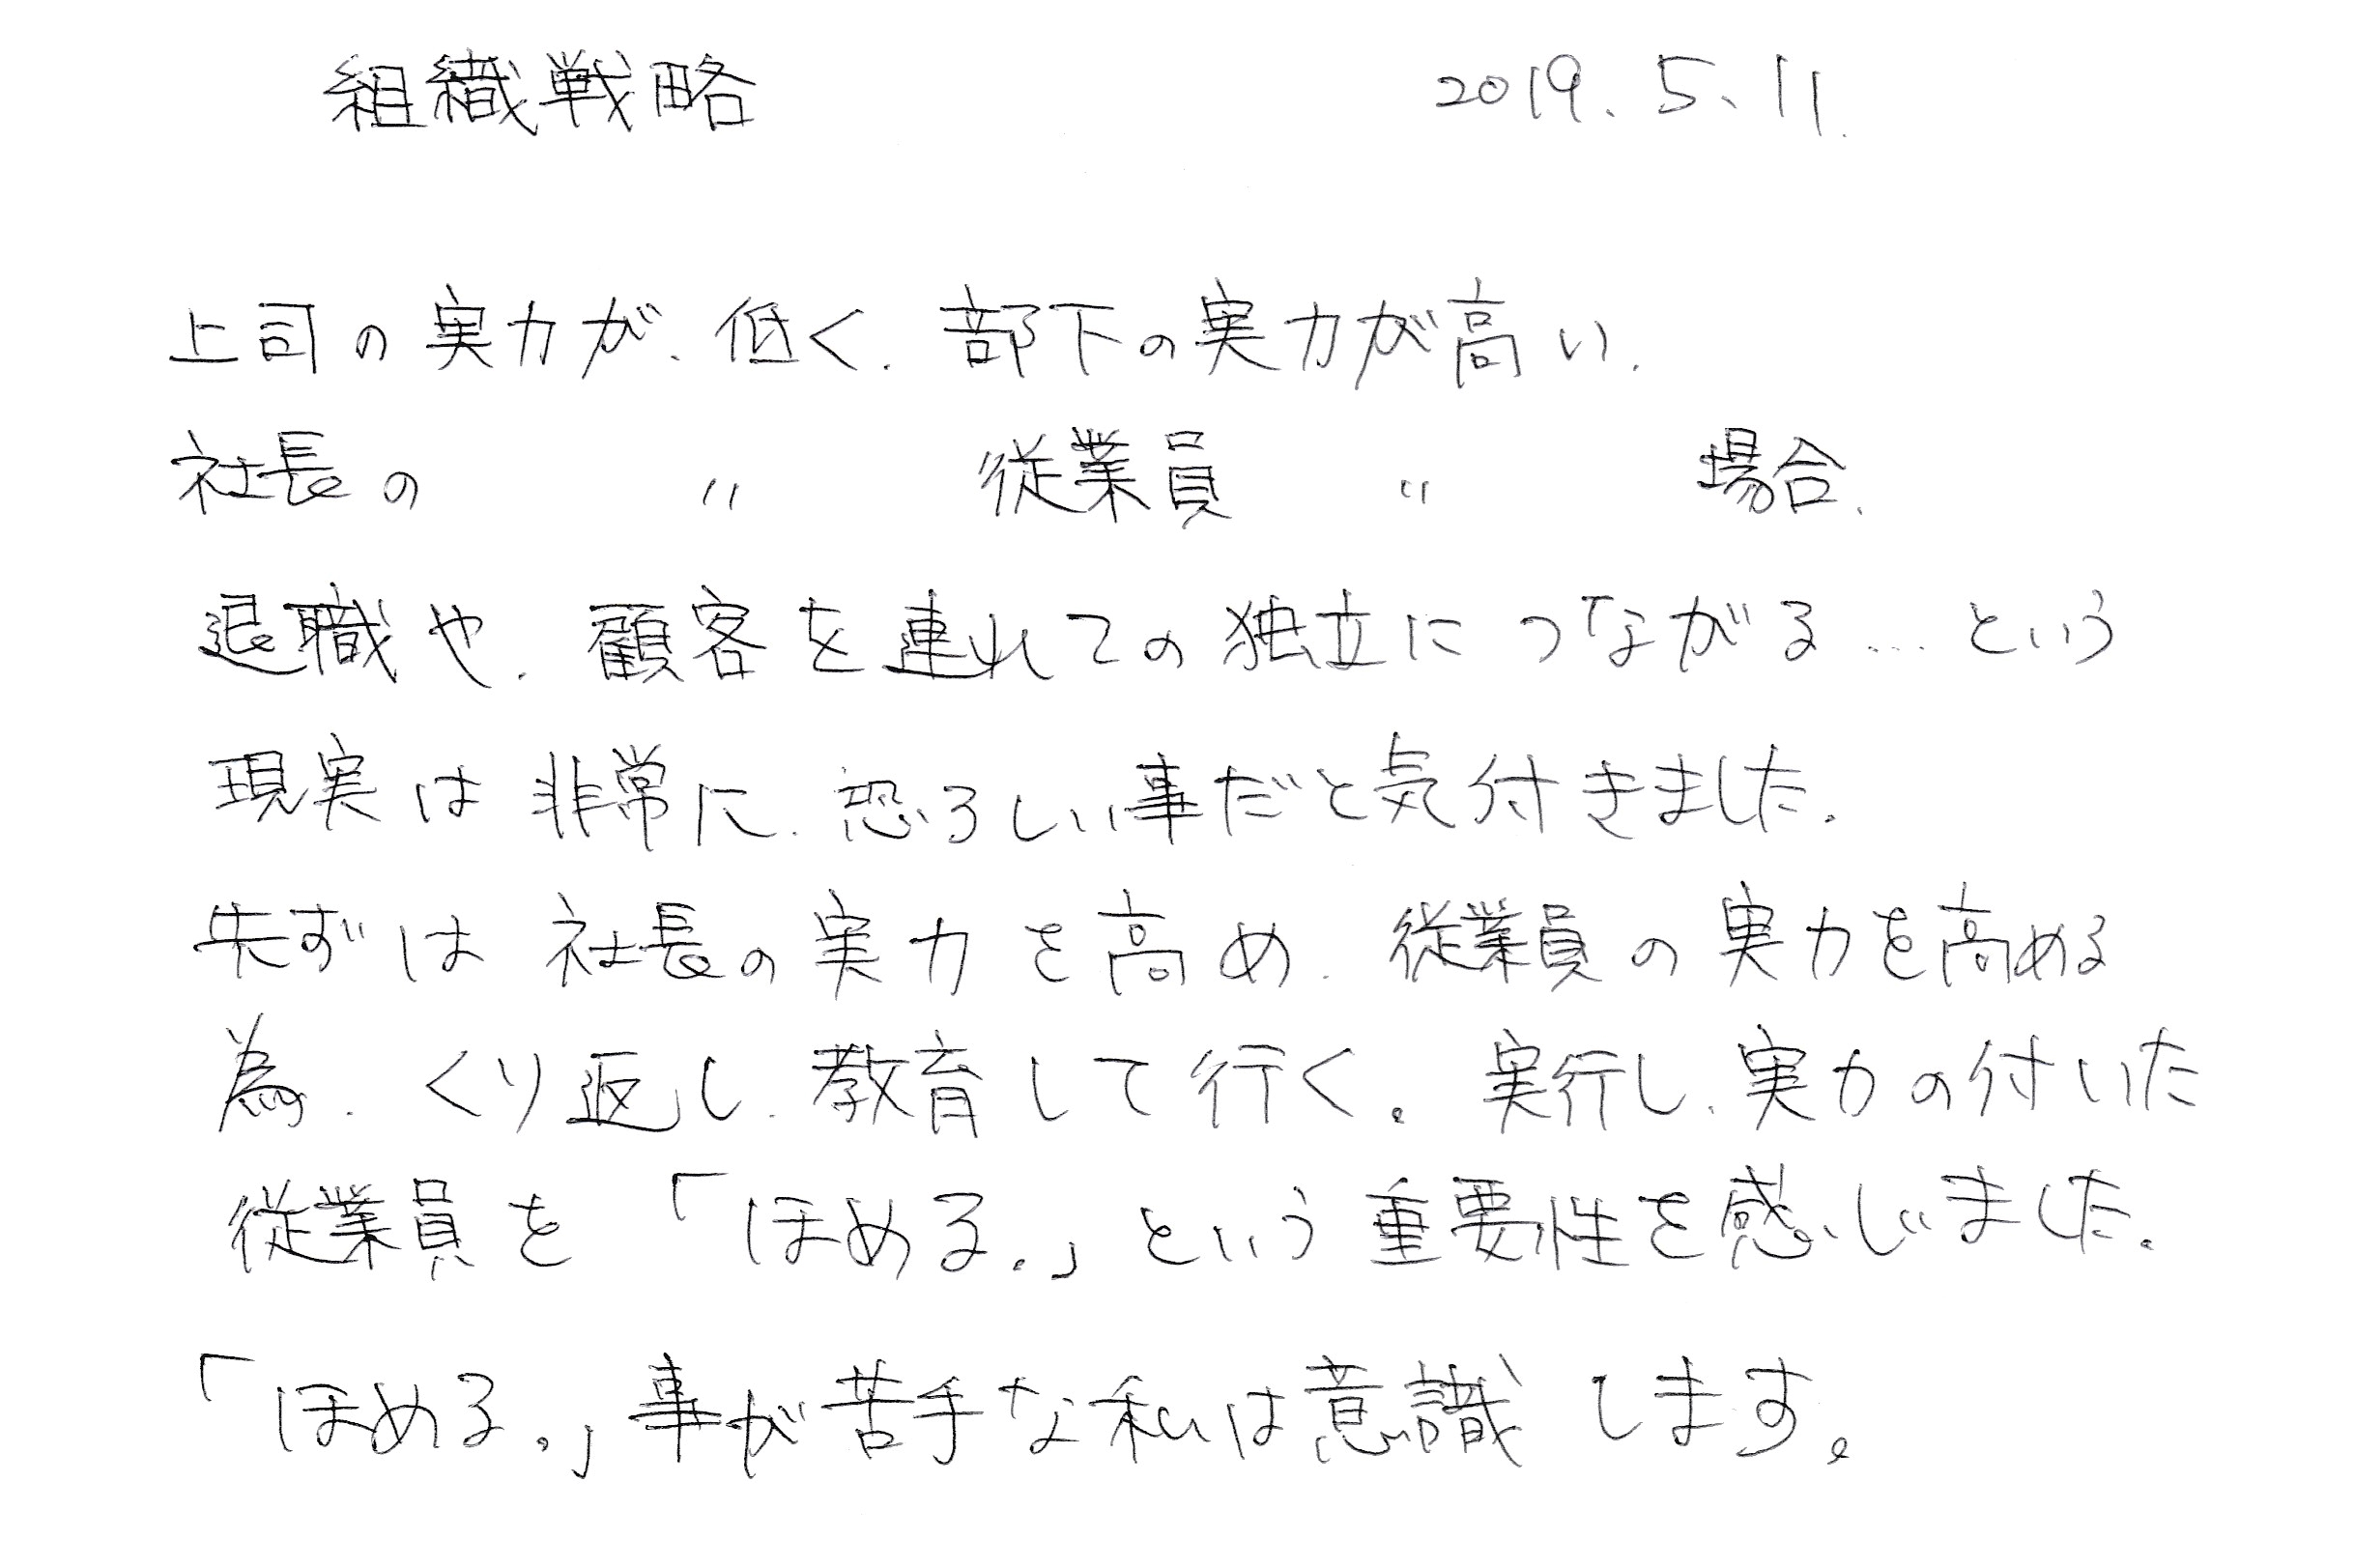 組織戦略　2019.5.11.
上司の実力が、低く、部下の実力が高い、
社長の　〃　従業員　〃　場合、
退職や、顧客を連れての独立につながる…という
現実は非常に、恐ろしい事だと気付きました。
失ずは社長の実力を高め、従業員の実力を高める
為、くり返し、教育して行く。実行し、実力の付いた
従業員を「ほめる。」という重要性を感じました。
「ほめる。」事が苦手な私は意識します。